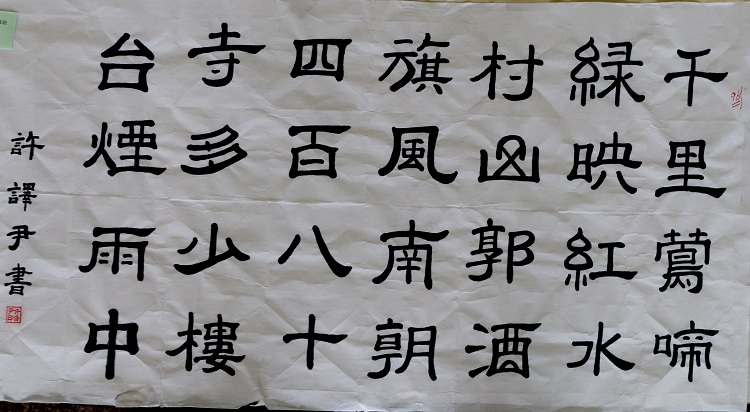 千里鶯啼
緑映紅水
村山郭酒
旗風南朝
四百八十
寺多少樓
台煙雨中
許譯尹書